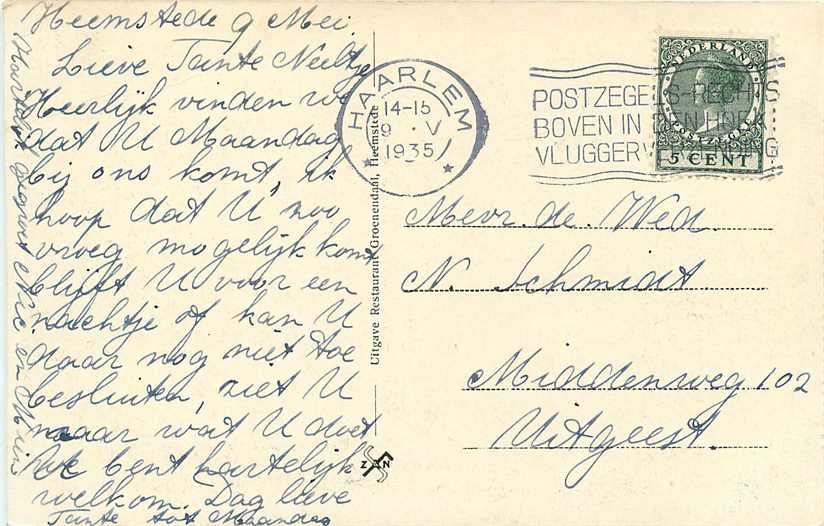 Heemstede 9 Mei.
Lieve Tante Neeltje
Heerlijk vinden we
dat U Maandag
bij ons komt, ik
hoop dat U zoo
vroeg mogelijk komt
blijft U voor een
nachtje of kan U
daar nog niet toe
besluiten, ziet U
maar wat U doet
U bent hartelijk
welkom. Dag lieve
Tante tot Maandag
Hartelijk gegroet Nic en Mien
Uitgave Restaurant Groenendaal, Heemstede
ZAN
HAARLEM
14-15
9 V
1935
POSTZEGELS RECHTS
BOVEN IN DEN HOEK
VLUGGER
NEDERLAND
5 CENT
Mevr. de Wed.
N. Schmidt.
Middenweg 102
Uitgeest.